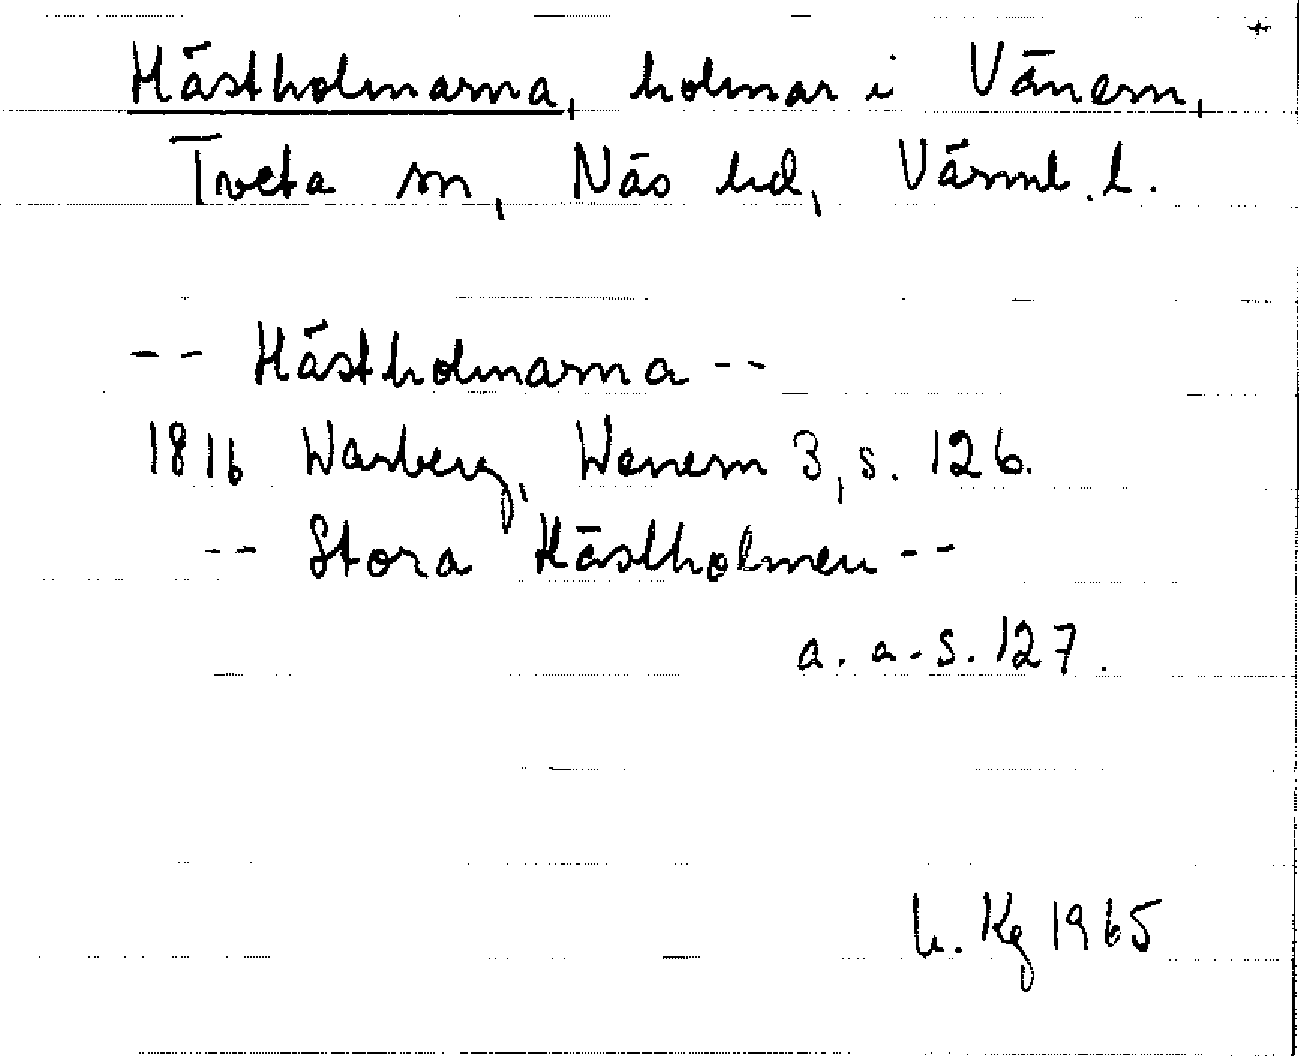 +
Hästholmarna, holmar i Vänern,
Tveta sn, Näs hd, Värml. l.
-- Hästholmarna --
1816 Warberg, Wenern 3, s. 126.
-- Stora Hästholmen --
a. a. s. 127.
h. Kg 1965